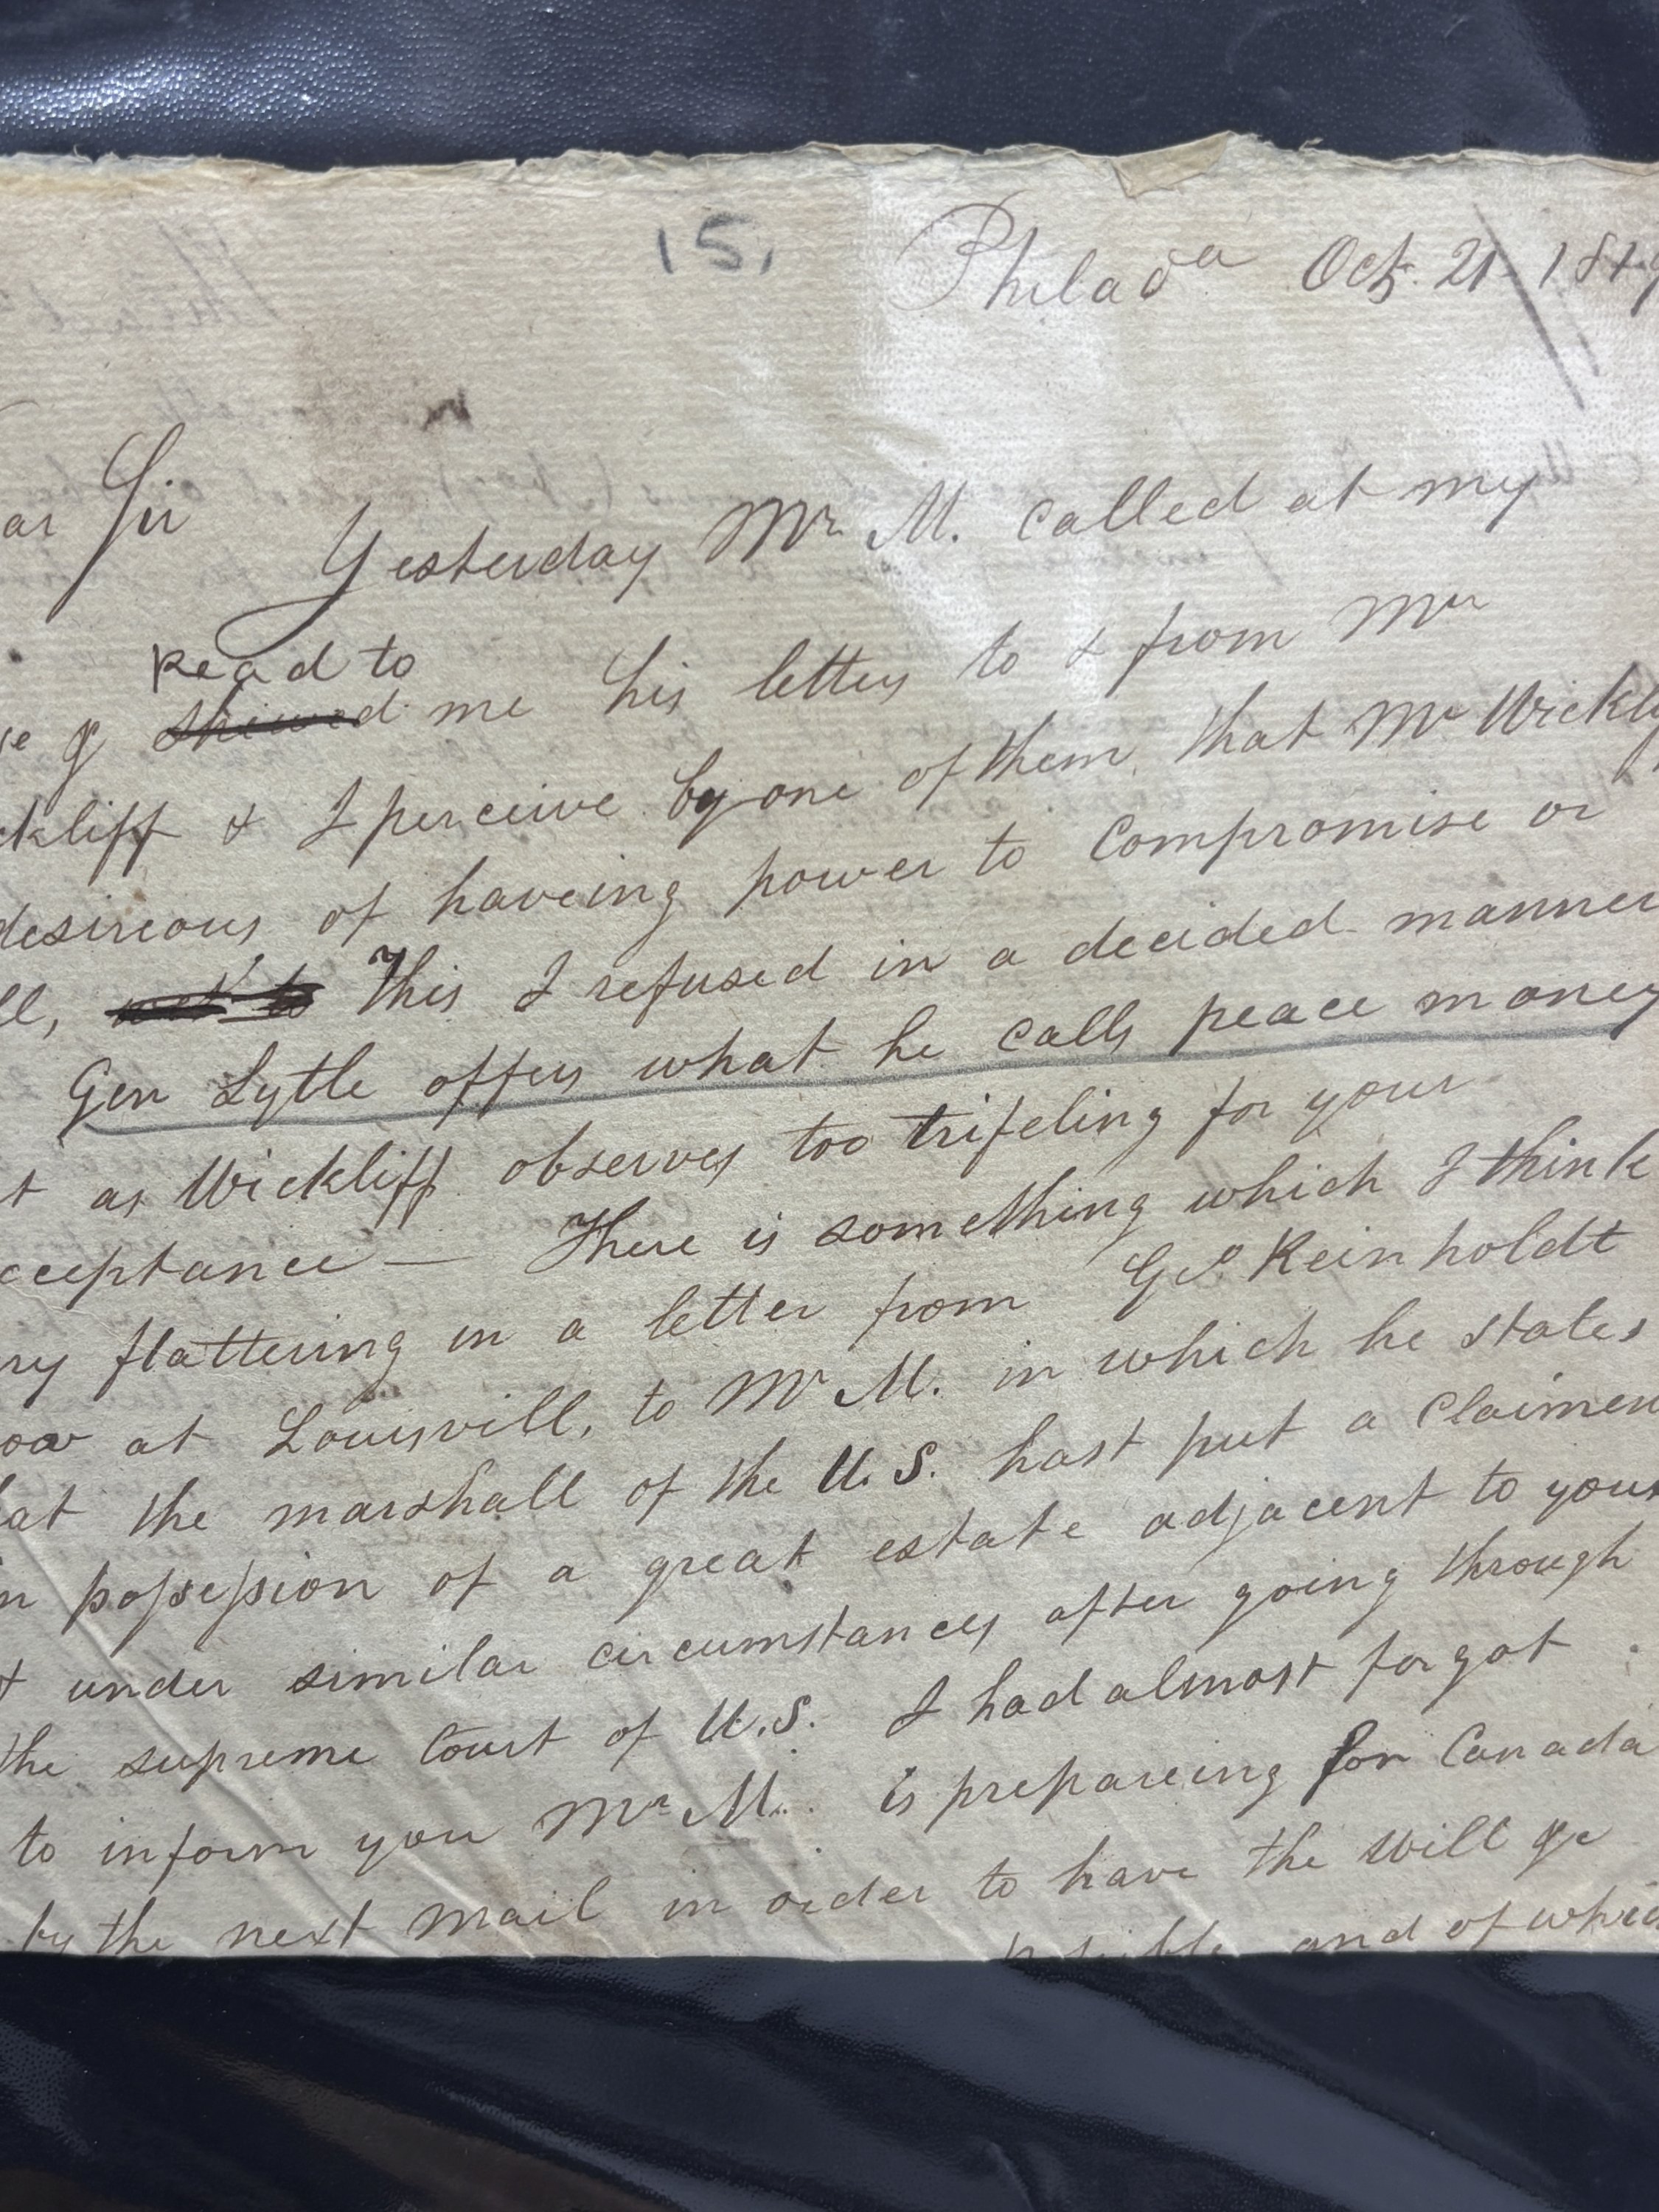 15,
Philada Oct. 21 1819
ar Sir
Yesterday Mr. M. called at my
read to
se & showed me his letters to & from Mr
ckliff & I perceive by one of them that Mr Wickly
desireous of haveing power to Compromise or
ll, This I refused in a decided manner
Gen Lytle offers what he calls peace money
t as Wickliff observes too trifeling for your
cceptance — There is something which I think
ry flattering in a letter from Geo Reinholdt
ow at Louisvill, to Mr M. in which he states
at the marshall of the U.S. hast put a Claimen
n possession of a great estate adjacent to your
t under similar circumstances after going through
the supreme Court of U.S. I had almost forgot
to inform you Mr M. is prepareing for Canada
by the next mail in order to have the Will &c
and of whic